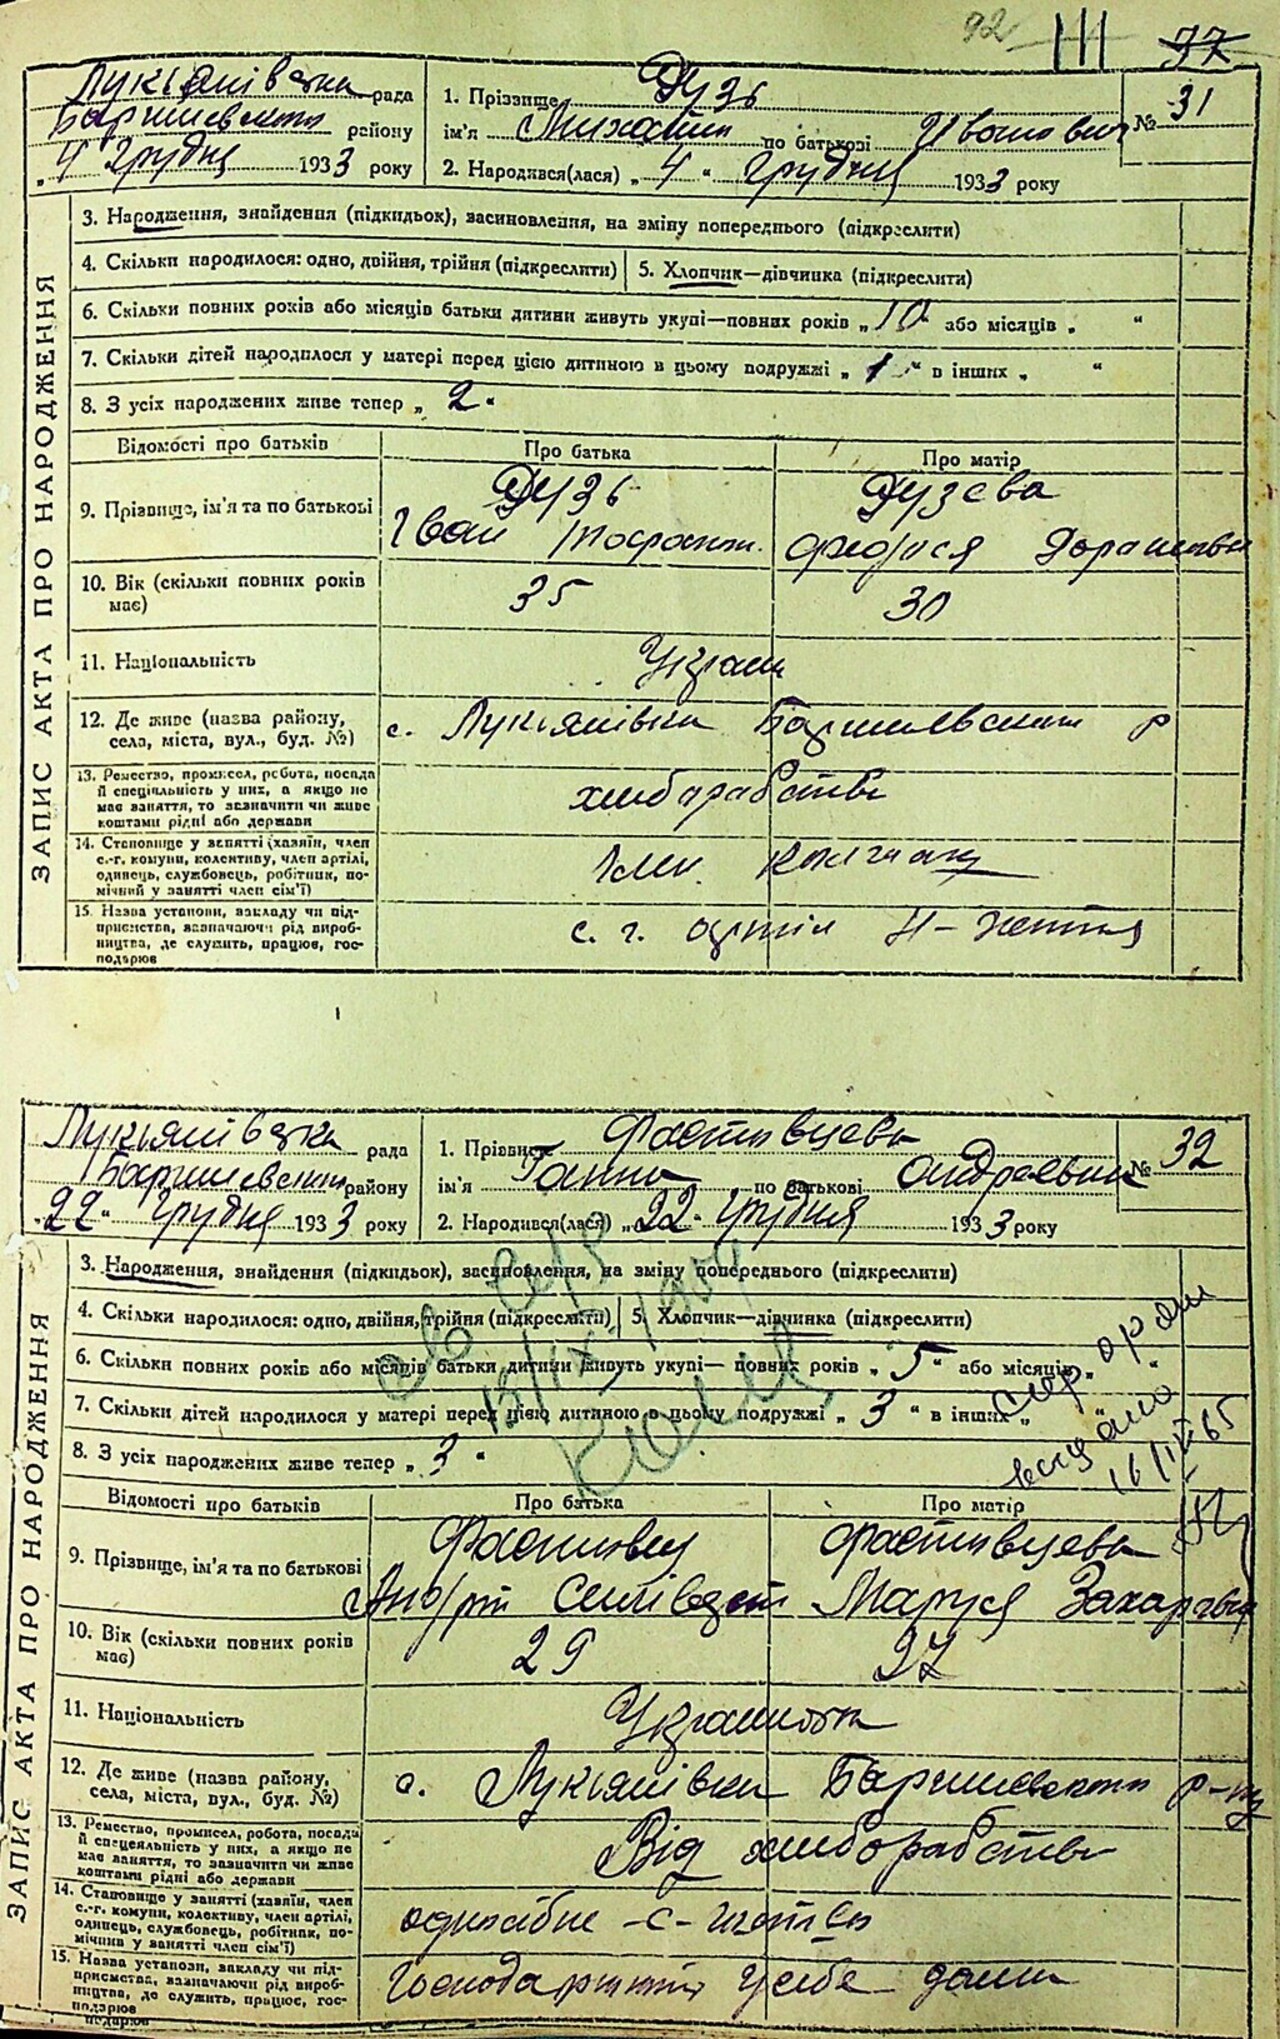 92 111 37
Лукьянівська рада
Баришевського району
„4" Грудня 1933 року
1. Прізвище Дузь
ім'я Михайло по батькові Иванович
2. Народився(лася) „4" Грудня 1933 року
№ 31
ЗАПИС АКТА ПРО НАРОДЖЕННЯ
3. Народження, знайдення (підкидьок), засиновлення, на зміну попереднього (підкреслити)
4. Скільки народилося: одно, двійня, трійня (підкреслити) 5. Хлопчик—дівчинка (підкреслити)
6. Скільки повних років або місяців батьки дитини живуть укупі—повних років „10" або місяців „ "
7. Скільки дітей народилося у матері перед цією дитиною в цьому подружжі „1" в інших „ "
8. З усіх народжених живе тепер „2"
Відомості про батьків Про батька Про матір
9. Прізвище, ім'я та по батькові
Дузь Дузева
Іван
10. Вік (скільки повних років має)
35 30
11. Національність
Україн
12. Де живе (назва району, села, міста, вул., буд. №)
с. Лукьянівка Баришевского р
13. Ремество, промисел, робота, посада й спеціальність у них, а якщо не має заняття, то зазначити чи живе коштами рідні або держави
хлиборабство
14. Становище у занятті (хазяїн, член с.-г. комуни, колективу, член артілі, одинець, службовець, робітник, помічний у занятті член сім'ї)
член
15. Назва установи, закладу чи підприємства, зазначаючи рід виробництва, де служить, працює, господарює
с. г. артіл
Лукьянівська рада
Баришевського району
„22" Грудня 1933 року
1. Прізвище Фастивцева
ім'я Ганна по батькові Андреевна
2. Народився(лася) „22" Грудня 1933 року
№ 32
ЗАПИС АКТА ПРО НАРОДЖЕННЯ
3. Народження, знайдення (підкидьок), засиновлення, на зміну попереднього (підкреслити)
4. Скільки народилося: одно, двійня, трійня (підкреслити) 5. Хлопчик—дівчинка (підкреслити)
6. Скільки повних років або місяців батьки дитини живуть укупі— повних років „5" або місяців „ "
7. Скільки дітей народилося у матері перед цією дитиною в цьому подружжі „3" в інших „ "
8. З усіх народжених живе тепер „3"
16/IV 65
Відомості про батьків Про батька Про матір
9. Прізвище, ім'я та по батькові
Фастивец Фастивцева
Маруся Захарівна
10. Вік (скільки повних років має)
29 27
11. Національність
12. Де живе (назва району, села, міста, вул., буд. №)
с. Лукьянівка Баришевского р-ну
13. Ремество, промисел, робота, посада й спецеяльність у них, а якщо не має заняття, то зазначити чи живе коштами рідні або держави
Від хлиборабства
14. Становище у занятті (хазяїн, член с.-г. комуни, колективу, член артілі, одинець, службовець, робітник, помічник у занятті член сім'ї)
15. Назва установи, закладу чи підприємства, зазначаючи рід виробництва, де служить, працює, господарює
у себе дома